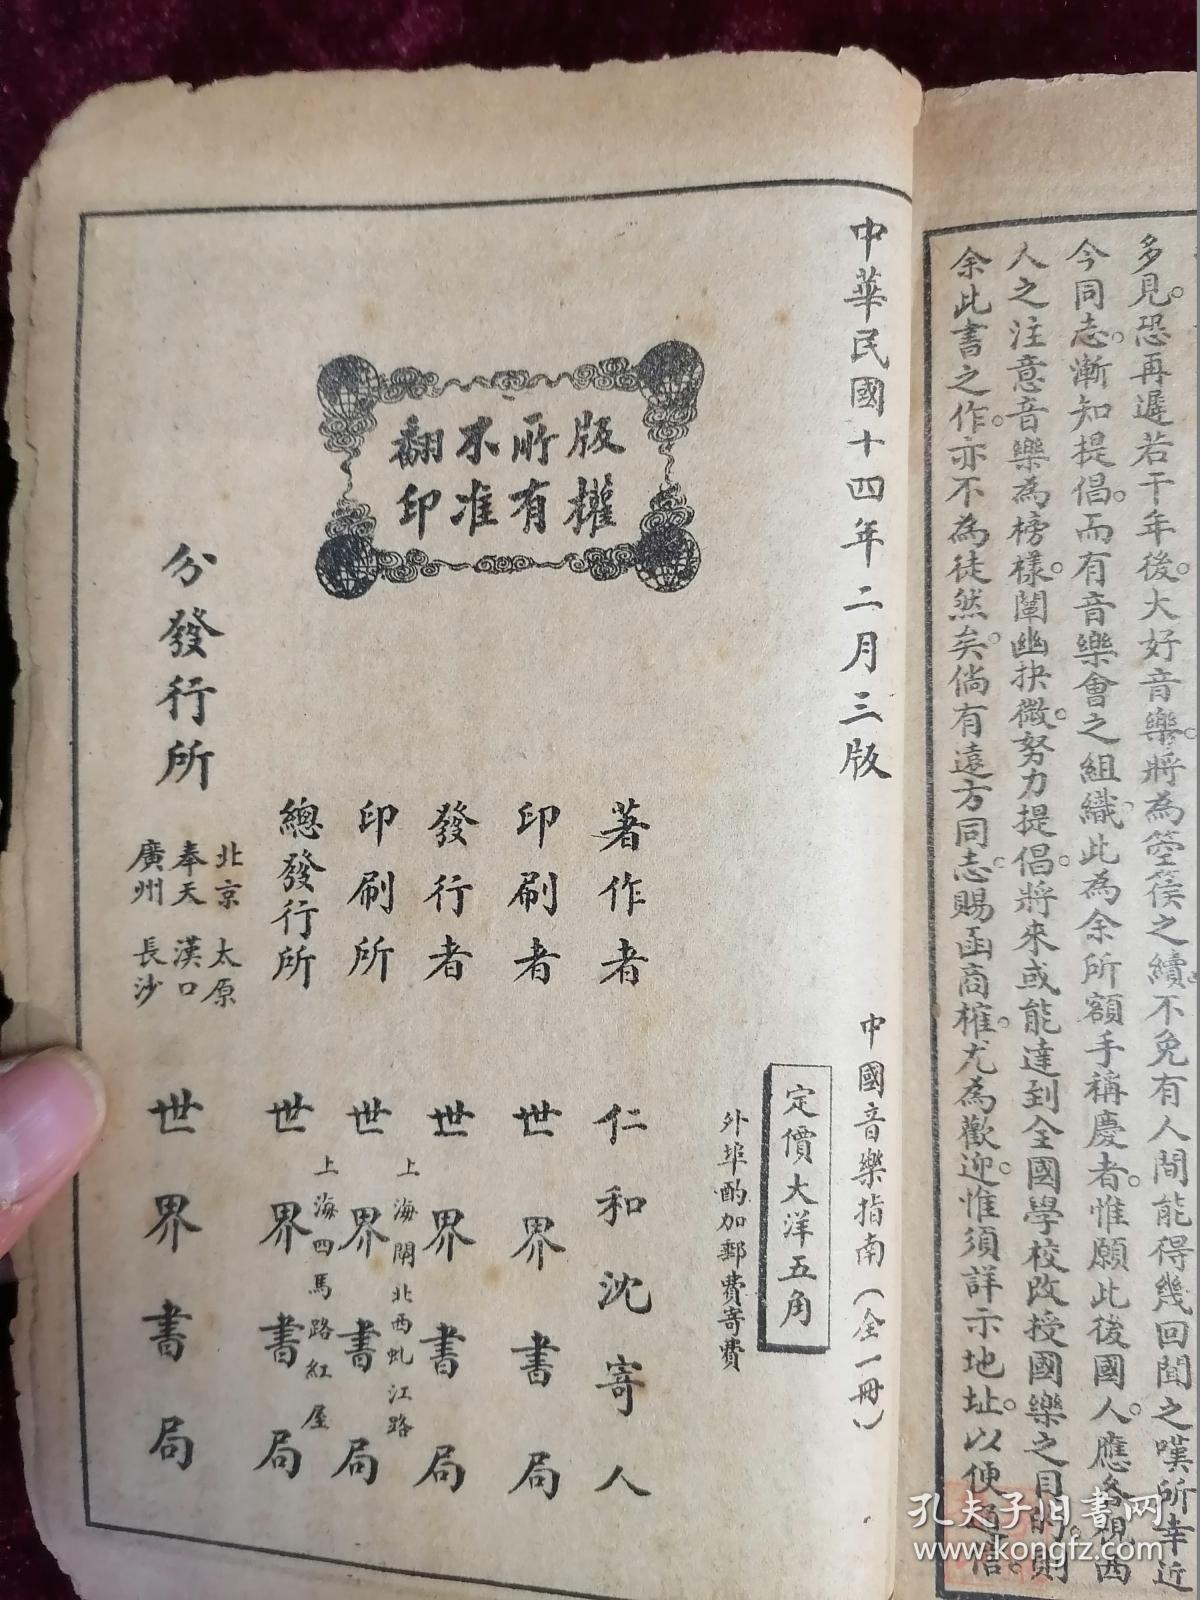 多見。恐再遲若干年後。大好音樂。將為箜篌之續。不免有人間能得幾回聞之嘆所幸近
今同志。漸知提倡。而有音樂會之組織。此為余所額手稱慶者。惟願此後國人。應各視西
人之注意音樂為榜樣。闡幽抉微。努力提倡。將來或能達到全國學校改授國樂之目的。則
余此書之作。亦不為徒然矣。倘有遠方同志。賜函商榷。尤為歡迎。惟須詳示地址。以便通信。
中華民國十四年二月三版
中國音樂指南(全一冊)
定價大洋五角
外埠酌加郵費寄費
版權
所有
不准
翻印
著作者 仁和沈寄人
印刷者 世界書局
發行者 世界書局
上海閘北西虬江路
印刷所 世界書局
上海四馬路紅屋
總發行所 世界書局
分發行所
北京 太原
奉天 漢口
廣州 長沙
世界書局
孔夫子旧書网
www.kongfz.com